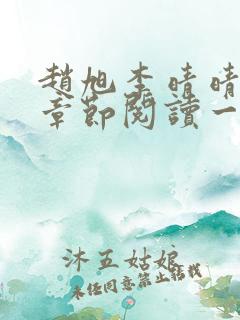 趙旭李晴晴
章節閱讀一
沐五姑娘
未經同意禁止轉載